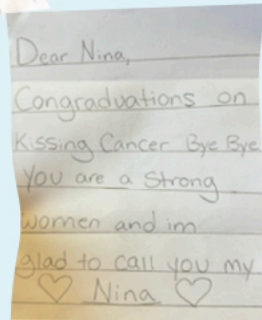 Dear Nina,
Congraduations on
Kissing Cancer Bye Bye
You are a Strong
women and im
glad to call you my
♡ Nina ♡